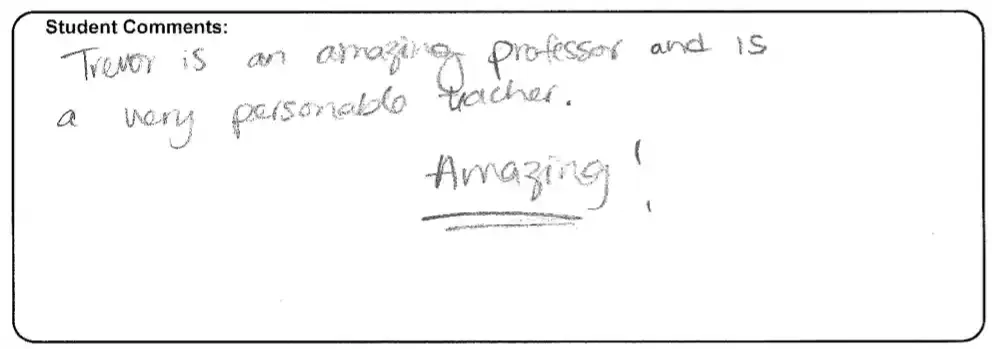 Student Comments:
Trevor is an amazing professor and is
a very personable teacher.
Amazing!